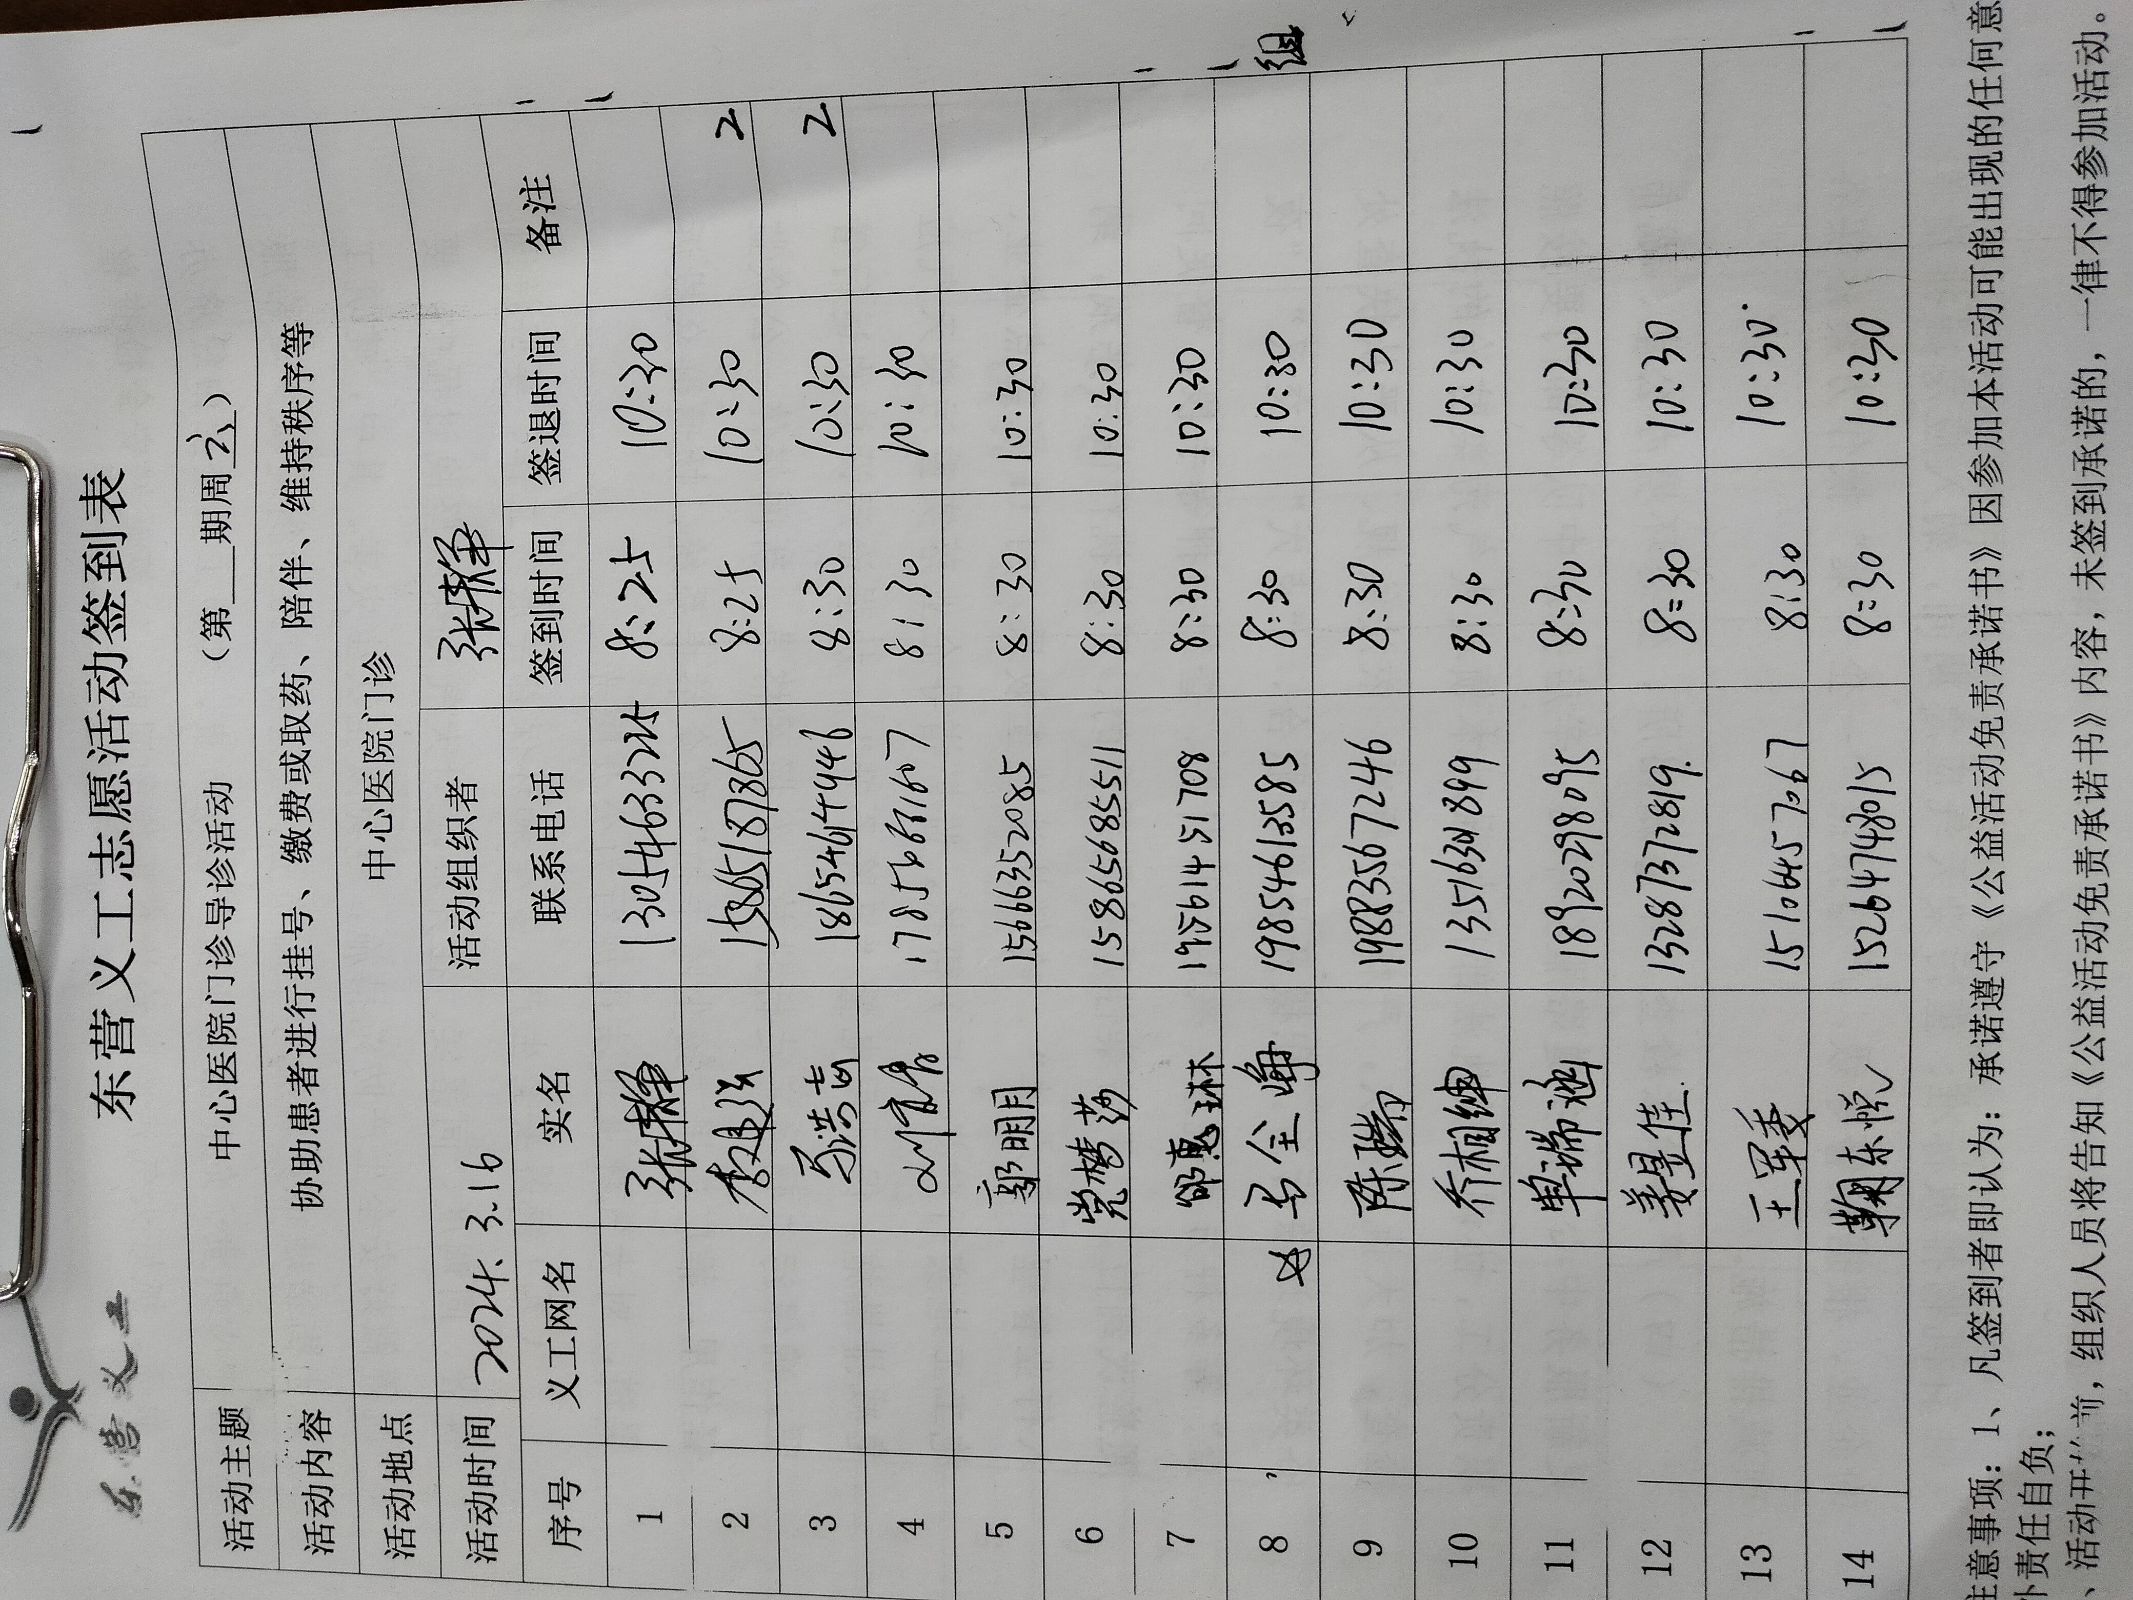 东营义工
东营义工志愿活动签到表
活动主题 中心医院门诊导诊活动 （第__期周六）
活动内容 协助患者进行挂号、缴费或取药、陪伴、维持秩序等
活动地点 中心医院门诊
活动时间 2024.3.16 活动组织者
序号 义工网名 实名 联系电话 签到时间 签退时间 备注
1 13054633225 8:25 10:30
2 8:25 10:30 2
3 8:30 10:30 2
4 8:30 10:30
5 郭明月 15666352085 8:30 10:30
6 党梦莎 15865685511 8:30 10:30
7 邰惠琳 19561451708 8:30 10:30
8 马全峥 19854613585 8:30 10:30 组
9 陈瑞 19883567246 8:30 10:30
10 乔相绅 8:30 10:30
11 单瑞涵 18920298095 8:30 10:30
12 姜昱佳 13287372819. 8:30 10:30
13 15106457067 8:30 10:30
14 鞠东悦 15264748015 8:30 10:30
注意事项：1、凡签到者即认为：承诺遵守《公益活动免责承诺书》因参加本活动可能出现的任何意
外责任自负；
、活动开始前，组织人员将告知《公益活动免责承诺书》内容，未签到承诺的，一律不得参加活动。